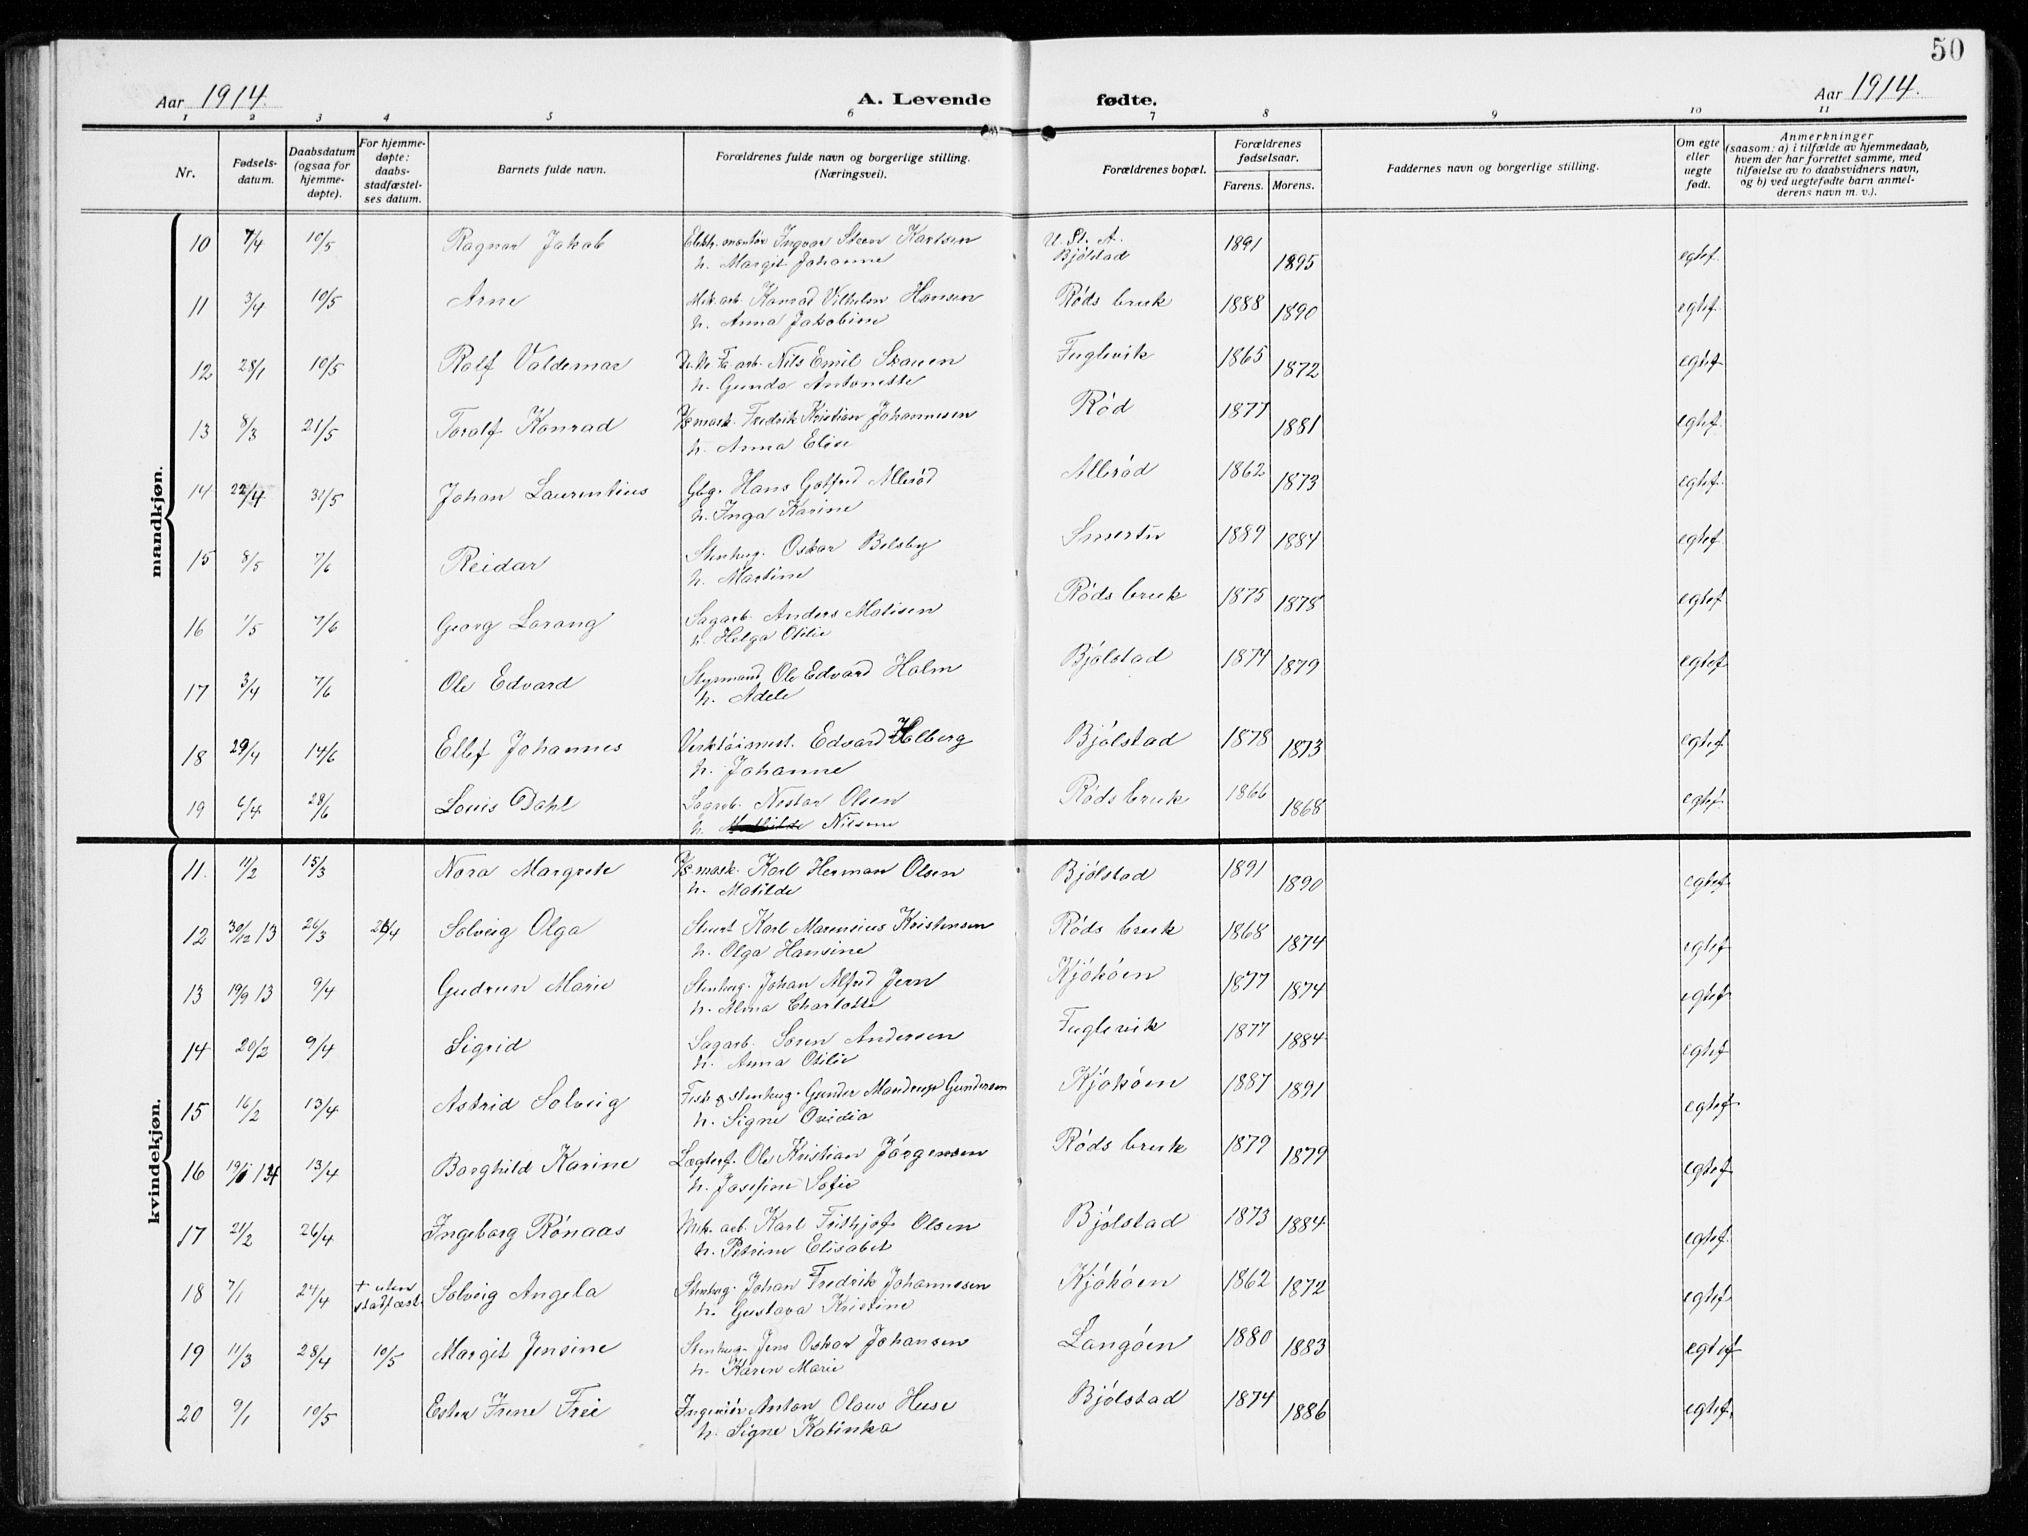 50
Aar 1914.
A. Levende fødte.
Aar 1914.
1 2 3 4 5 6 7 8 9 10 11
Nr.
Fødsels-
datum.
Daabsdatum
(ogsaa for
hjemme-
døpte).
For hjemme-
døpte:
daabs-
stadfæstel-
ses datum.
Barnets fulde navn.
Forældrenes fulde navn og borgerlige stilling.
(Næringsvei).
Forældrenes bopæl.
Forældrenes
fødselsaar.
Farens. Morens.
Faddernes navn og borgerlige stilling.
Om egte
eller
uegte
født.
Anmerkninger
(saasom: a) i tilfælde av hjemmedaab,
hvem der har forrettet samme, med
tilføielse av to daabsvidners navn,
og b) ved uegtefødte barn anmel-
derens navn m. v.).
mandkjøn.
10 7/4 10/5 Ragnar Jakob Elektr. montør Ingvar Steen Karlsen U. St. A. Bjølstad 1891 1895 egtef.
h. Margit Johanne
11 3/4 10/5 Arne Mek. arb. Konrad Vilhelm Hansen Røds bruk 1888 1890 egtef.
h. Anna Jakobine
12 28/1 10/5 Rolf Valdemar Fa. arb. Nils Emil Skauen Fuglevik 1865 1872 egtef.
h. Gunda Antonette
13 8/3 21/5 Toralf Konrad mask. Fredrik Kristian Johannesen Rød 1877 1881 egtef.
h. Anna Elise
14 22/4 31/5 Johan Laurentius Gbg. Hans Gotfred Allerød Allerød 1862 1873 egtef.
h. Inga Karine
15 8/5 7/6 Reidar Stenhug. Oskar Belsby Smertu 1889 1884 egtef.
h. Martine
16 1/5 7/6 Georg Lorang Sagarb. Anders Matisen Røds bruk 1875 1878 egtef.
h. Helga Otilie
17 3/4 7/6 Ole Edvard Styrmand Ole Edvard Holm Bjølstad 1874 1879 egtef.
h. Adele
18 29/4 14/6 Ellef Johannes Verktøimest. Edvard Holberg Bjølstad 1878 1873 egtef.
h. Johanne
19 6/4 28/6 Louis Dahl Sagarb. Nestor Olsen Røds bruk 1866 1868 egtef.
h. Nilsine
kvindekjøn.
11. 11/2 15/3 Nora Margrete mask. Karl Herman Olsen Bjølstad 1891 1890 egtef.
h. Matilde
12 30/12 13 26/3 26/4 Solveig Olga Stuert Karl Marensius Kristensen Røds bruk 1868 1874 egtef.
h. Olga Hansine
13 19/9 13 9/4 Gudrun Marie Stenhug. Johan Alfred Jern Kjøkøen 1877 1874 egtef.
h. Alma Charlotte
14 20/2 9/4 Sigrid Sagarb. Søren Andersen Fuglevik 1877 1884 egtef.
h. Anna Otilie
15 16/2 13/4 Astrid Solveig Fisk. & stenhug. Gunder Mandrup Gundersen Kjøkøen 1887 1891 egtef.
h. Signe Ovidia
16 13/4 Borghild Karine Lægterf. Ole Kristian Jørgensen Røds bruk 1879 1879 egtef.
h. Josefine Sofie
17 21/2 26/4 Ingeborg Rønaas Mek. arb. Karl Frithjof Olsen Bjølstad 1873 1884 egtef.
h. Petrine Elisabet
18 7/1 24/4 + uten stadfæst. Solveig Angela Stenhug. Johan Fredrik Johannesen Kjøkøen 1862 1872 egtef.
h. Gustava Kristine
19 11/3 28/4 10/5 Margit Jensine Stenhug. Jens Oskar Johansen Langøen 1880 1883 egtef
h. Karen Marie
20 9/1 10/5 Ester Irene Frei Ingeniør Anton Olaus Huse Bjølstad 1874 1886 egtef.
h. Signe Katinka